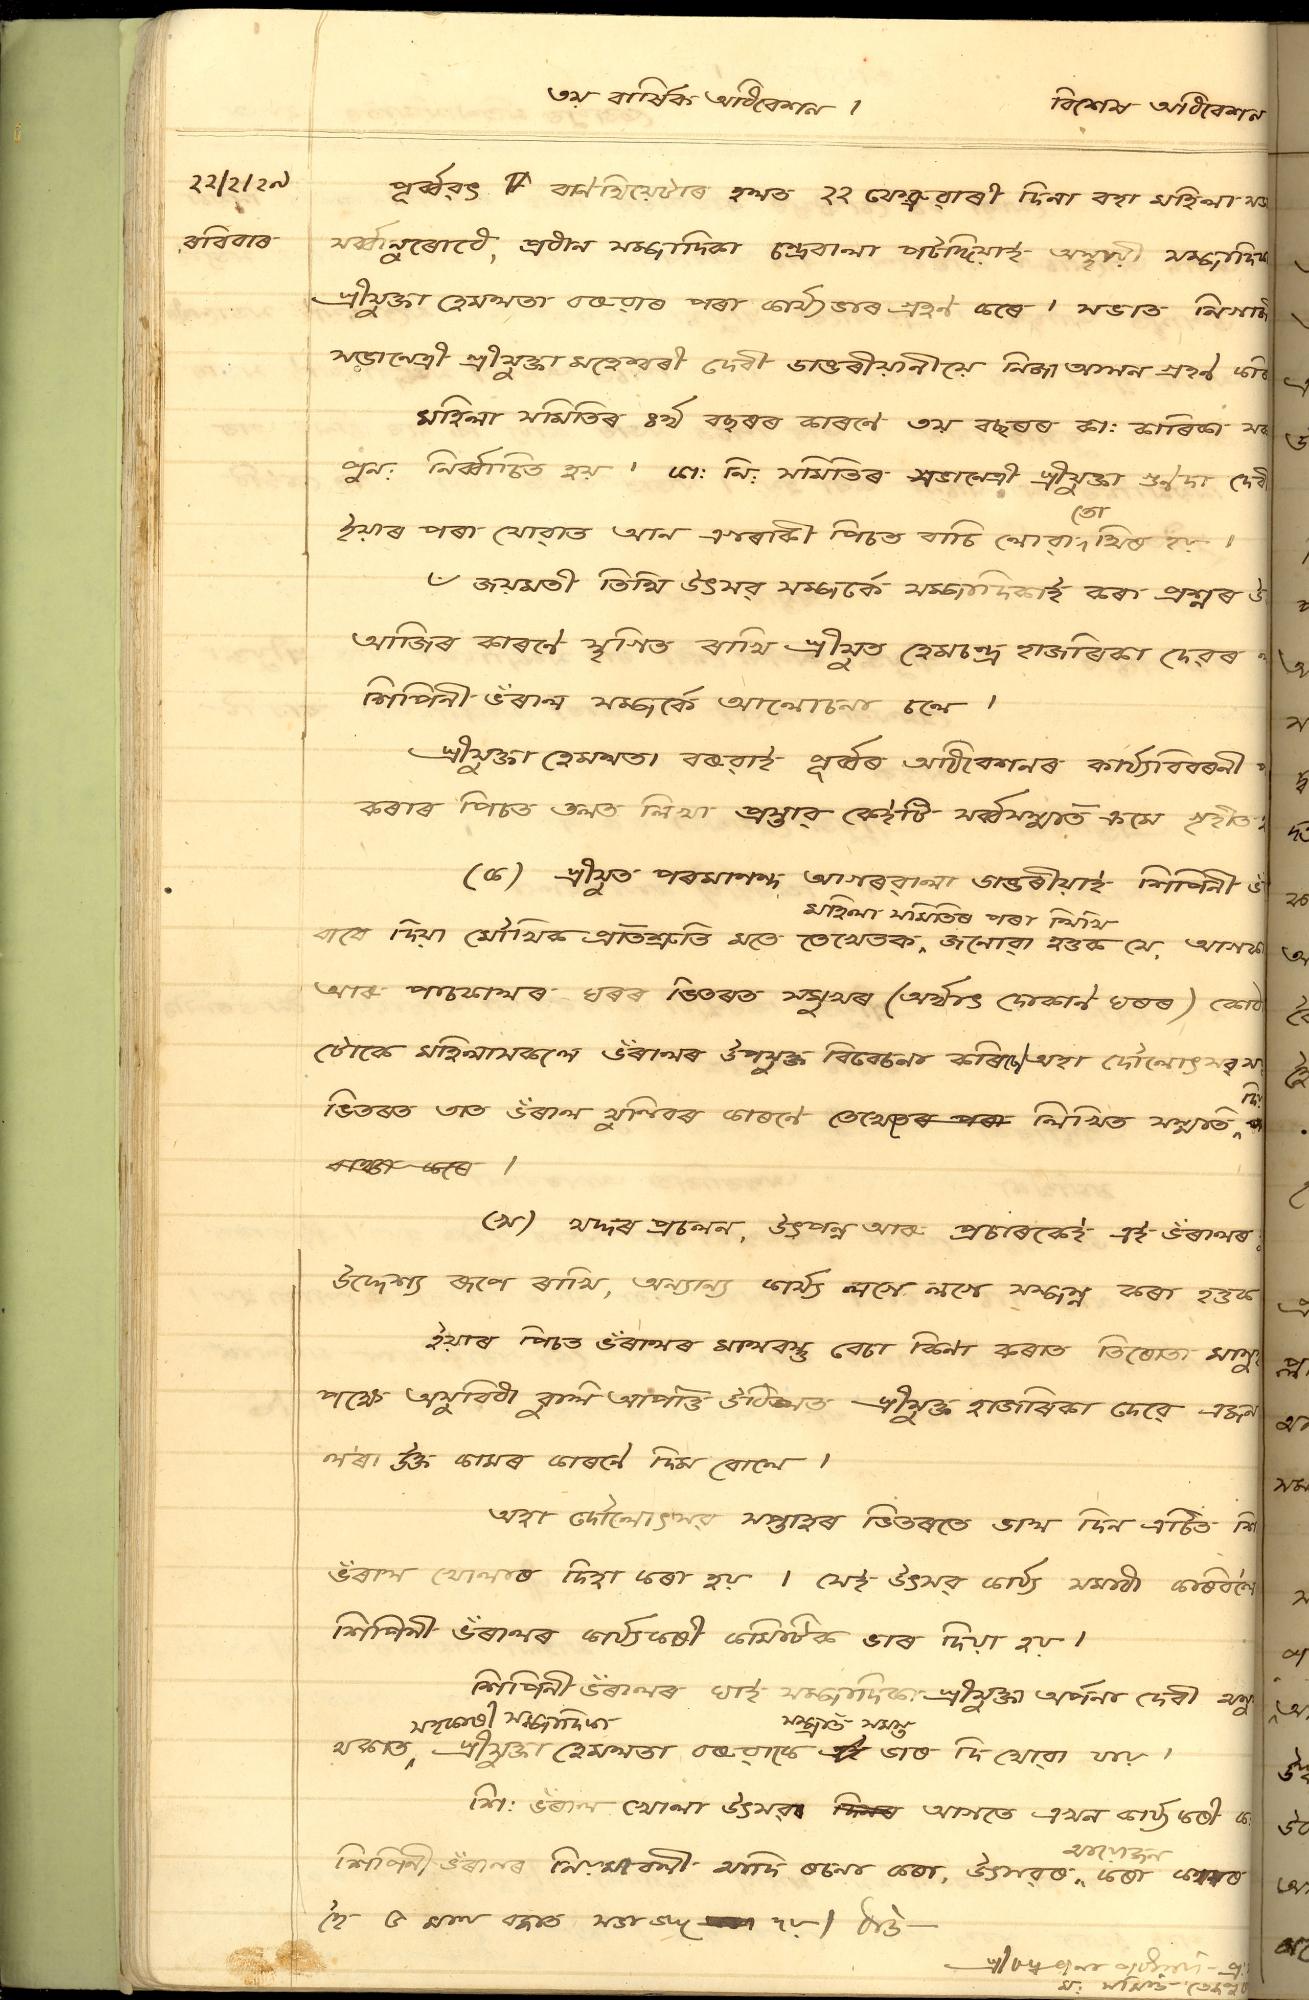 ৩য় বাৰ্ষিক অধিবেশন । বিশেষ অধিবেশন
২২/২/২৯ পূৰ্ব্ববৎ বাণ থিয়েটাৰ হলত ২২ ফেব্ৰুৱাৰী দিনা বহা মহিলা
ৰবিবাৰ সৰ্ব্বানুৰোধে, প্ৰধান সম্পাদিকা চন্দ্ৰবালা পাটগিৰিয়াই অস্থায়ী সম্পাদিকা
শ্ৰীযুক্তা হেমলতা বৰুৱাৰ পৰা কাৰ্য্যভাৰ গ্ৰহণ কৰে । সভাত
সভানেত্ৰী শ্ৰীযুক্তা মহেশ্বৰী দেবী ডাক্তৰীয়ানীয়ে নিজ আসন গ্ৰহণ
মহিলা সমিতিৰ ৪ৰ্থ বছৰৰ কাৰণে ৩য় বছৰৰ কা: কাৰিকা
পুন: নিৰ্ব্বাচিত হয় । কা: নি: সমিতিৰ সভানেত্ৰী শ্ৰীযুক্তা দেবী
ইয়াৰ পৰা যোৱাত আন এগৰাকী পিচত বাচি লোৱাতো থিৰ হয় ।
৺ জয়মতী তিথি উৎসৱ সম্পৰ্কে সম্পাদিকাই কৰা প্ৰশ্নৰ
আজিৰ কাৰণে স্থগিত ৰাখি শ্ৰীযুত হেমচন্দ্ৰ হাজৰিকা দেৱৰ
শিপিনী ভঁৰাল সম্পৰ্কে আলোচনা চলে ।
শ্ৰীযুক্তা হেমলতা বৰুৱাই পূৰ্ব্বৰ অধিবেশনৰ কাৰ্য্যবিবৰনী
কৰাৰ পিচত তলত লিখা প্ৰস্তাৱ কেইটি সৰ্ব্বসন্মতি ক্ৰমে গৃহীত
(ক) শ্ৰীযুত পৰমানন্দ আগৰৱালা ডাক্তৰীয়াই শিপিনী
মহিলা সমিতিৰ পৰা লিখি
বাবে দিয়া মৌখিক প্ৰতিশ্ৰুতি মতে তেখেতক জনোৱা হওক যে,
আৰু পাচফালৰ ঘৰৰ ভিতৰত সমুখৰ (অৰ্থাৎ দোকান ঘৰৰ)
টোকে মহিলাসকলে ভঁৰালৰ উপযুক্ত বিবেচনা কৰিছে। অহা দৌলোৎসৱৰ
ভিতৰত তাত ভঁৰাল খুলিবৰ কাৰণে তেখেতৰ পৰা লিখিত সন্মতি
বাঞ্চা কৰে ।
(খ) খদ্দৰ প্ৰচলন, উৎপন্ন আৰু প্ৰচাৰকেই এই ভঁৰালৰ
উদ্দেশ্য ৰূপে ৰাখি, অন্যান্য কাৰ্য্য লগে লগে সম্পন্ন কৰা হওক
ইয়াৰ পিচত ভঁৰালৰ মালবস্তু বেচা কিনা কৰাত তিৰোতা
পক্ষে অসুবিধা বুলি আপত্তি উঠিলত শ্ৰীযুক্ত হাজৰিকা দেৱে এজন
ল'ৰা উক্ত কামৰ কাৰণে দিম বোলে ।
অহা দৌলোৎসৱ সপ্তাহৰ ভিতৰতে ভাল দিন এটিত
ভঁৰাল খোলাৰ দিহা কৰা হয় । সেই উৎসৱ কাৰ্য্য সমাধা কৰিবলৈ
শিপিনী ভঁৰালৰ কাৰ্য্যকৰী কমিটিক ভাৰ দিয়া হয় ।
শিপিনী ভঁৰালৰ ঘাই সম্পাদিকা শ্ৰীযুক্তা অৰ্পনা দেবী
সহকাৰী সম্পাদিকা সম্প্ৰতি সমস্ত
থকাত, শ্ৰীযুক্তা হেমলতা বৰুৱাকে এই ভাৰ দি থোৱা যায় ।
শি: ভঁৰাল খোলা উৎসৱৰ দিনৰ আগতে এখন কাৰ্য্যকৰী
শিপিনী ভঁৰালৰ নিয়মাবলী আদি ৰচনা কৰা, উৎসৱৰ আয়োজন কৰা
হৈ ৫ মান বজাত সভা ভঙ্গ হয় । ইতি—